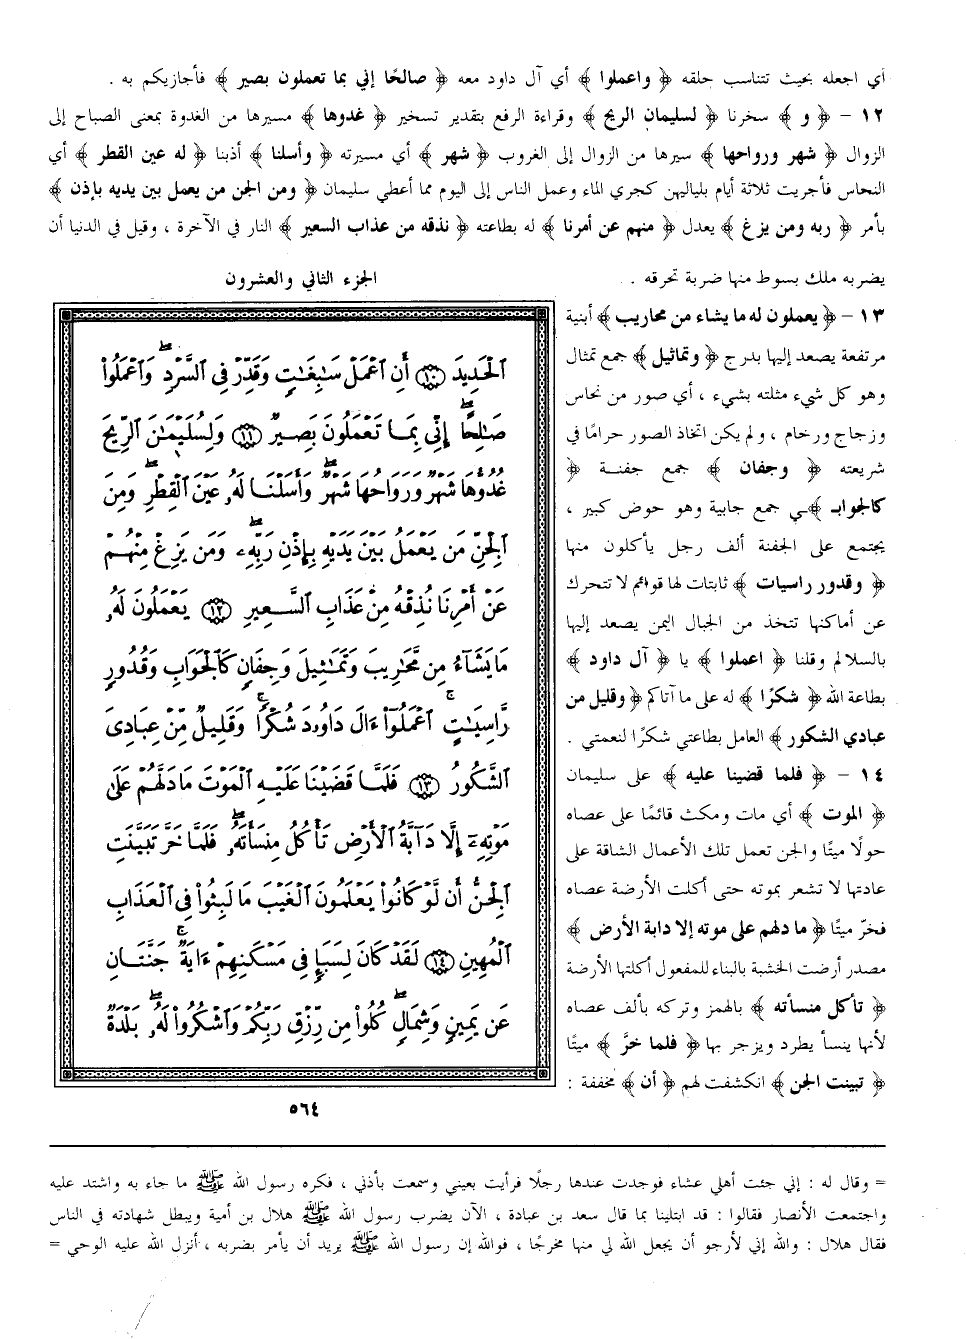 أي اجعله بحيث تتناسب حلقه ﴿ واعملوا ﴾ أي آل داود معه ﴿ صالحًا إني بما تعملون بصير ﴾ فأجازيكم به .
١٢ - ﴿ و ﴾ سخرنا ﴿ لسليمان الريح ﴾ وقراءة الرفع بتقدير تسخير ﴿ غدوها ﴾ مسيرها من الغدوة بمعنى الصباح إلى
الزوال ﴿ شهر ورواحها ﴾ سيرها من الزوال إلى الغروب ﴿ شهر ﴾ أي مسيرته ﴿ وأسلنا ﴾ أذبنا ﴿ له عين القطر ﴾ أي
النحاس فأجريت ثلاثة أيام بلياليهن كجري الماء وعمل الناس إلى اليوم مما أعطي سليمان ﴿ ومن الجن من يعمل بين يديه بإذن ﴾
بأمر ﴿ ربه ومن يزغ ﴾ يعدل ﴿ منهم عن أمرنا ﴾ له بطاعته ﴿ نذقه من عذاب السعير ﴾ النار في الآخرة ، وقيل في الدنيا أن
يضربه ملك بسوط منها ضربة تحرقه .
١٣ - ﴿ يعملون له ما يشاء من محاريب ﴾ أبنية
مرتفعة يصعد إليها بدرج ﴿ وتماثيل ﴾ جمع تمثال
وهو كل شيء مثلته بشيء ، أي صور من نحاس
وزجاج ورخام ، ولم يكن اتخاذ الصور حرامًا في
شريعته ﴿ وجفان ﴾ جمع جفنة ﴿
كالجوابـ ﴾ـي جمع جابية وهو حوض كبير ،
يجتمع على الجفنة ألف رجل يأكلون منها
﴿ وقدور راسيات ﴾ ثابتات لها قوائم لا تتحرك
عن أماكنها تتخذ من الجبال اليمن يصعد إليها
بالسلالم وقلنا ﴿ اعملوا ﴾ يا ﴿ آل داود ﴾
بطاعة الله ﴿ شكرًا ﴾ له على ما آتاكم ﴿ وقليل من
عبادي الشكور ﴾ العامل بطاعتي شكرًا لنعمتي .
١٤ - ﴿ فلما قضينا عليه ﴾ على سليمان
﴿ الموت ﴾ أي مات ومكث قائمًا على عصاه
حولًا ميتًا والجن تعمل تلك الأعمال الشاقة على
عادتها لا تشعر بموته حتى أكلت الأرضة عصاه
فخرّ ميتًا ﴿ ما دلهم على موته إلا دابة الأرض ﴾
مصدر أرضت الخشبة بالبناء للمفعول أكلتها الأرضة
﴿ تأكل منسأته ﴾ بالهمز وتركه بألف عصاه
لأنها ينسأ يطرد ويزجر بها ﴿ فلما خرَّ ﴾ ميتًا
﴿ تبينت الجن ﴾ انكشفت لهم ﴿ أن ﴾ مخففة :
الجزء الثاني والعشرون
ٱلْحَدِيدَ ۝١٠ أَنِ ٱعْمَلْ سَٰبِغَٰتٍ وَقَدِّرْ فِى ٱلسَّرْدِ ۖ وَٱعْمَلُوا۟
صَٰلِحًا ۖ إِنِّى بِمَا تَعْمَلُونَ بَصِيرٌ ۝١١ وَلِسُلَيْمَٰنَ ٱلرِّيحَ
غُدُوُّهَا شَهْرٌ وَرَوَاحُهَا شَهْرٌ ۖ وَأَسَلْنَا لَهُۥ عَيْنَ ٱلْقِطْرِ ۖ وَمِنَ
ٱلْجِنِّ مَن يَعْمَلُ بَيْنَ يَدَيْهِ بِإِذْنِ رَبِّهِۦ ۖ وَمَن يَزِغْ مِنْهُمْ
عَنْ أَمْرِنَا نُذِقْهُ مِنْ عَذَابِ ٱلسَّعِيرِ ۝١٢ يَعْمَلُونَ لَهُۥ
مَا يَشَآءُ مِن مَّحَٰرِيبَ وَتَمَٰثِيلَ وَجِفَانٍ كَٱلْجَوَابِ وَقُدُورٍ
رَّاسِيَٰتٍ ۚ ٱعْمَلُوٓا۟ ءَالَ دَاوُۥدَ شُكْرًا ۚ وَقَلِيلٌ مِّنْ عِبَادِىَ
ٱلشَّكُورُ ۝١٣ فَلَمَّا قَضَيْنَا عَلَيْهِ ٱلْمَوْتَ مَا دَلَّهُمْ عَلَىٰ
مَوْتِهِۦٓ إِلَّا دَآبَّةُ ٱلْأَرْضِ تَأْكُلُ مِنسَأَتَهُۥ ۖ فَلَمَّا خَرَّ تَبَيَّنَتِ
ٱلْجِنُّ أَن لَّوْ كَانُوا۟ يَعْلَمُونَ ٱلْغَيْبَ مَا لَبِثُوا۟ فِى ٱلْعَذَابِ
ٱلْمُهِينِ ۝١٤ لَقَدْ كَانَ لِسَبَإٍ فِى مَسْكَنِهِمْ ءَايَةٌ ۖ جَنَّتَانِ
عَن يَمِينٍ وَشِمَالٍ ۖ كُلُوا۟ مِن رِّزْقِ رَبِّكُمْ وَٱشْكُرُوا۟ لَهُۥ ۚ بَلْدَةٌ
٥٦٤
= وقال له : إني جئت أهلي عشاء فوجدت عندها رجلًا فرأيت بعيني وسمعت بأذني ، فكره رسول الله ﷺ ما جاء به واشتد عليه
واجتمعت الأنصار فقالوا : قد ابتلينا بما قال سعد بن عبادة ، الآن يضرب رسول الله ﷺ هلال بن أمية ويبطل شهادته في الناس
فقال هلال : والله إني لأرجو أن يجعل الله لي منها مخرجًا ، فوالله إن رسول الله ﷺ يريد أن يأمر بضربه ، أنزل الله عليه الوحي =